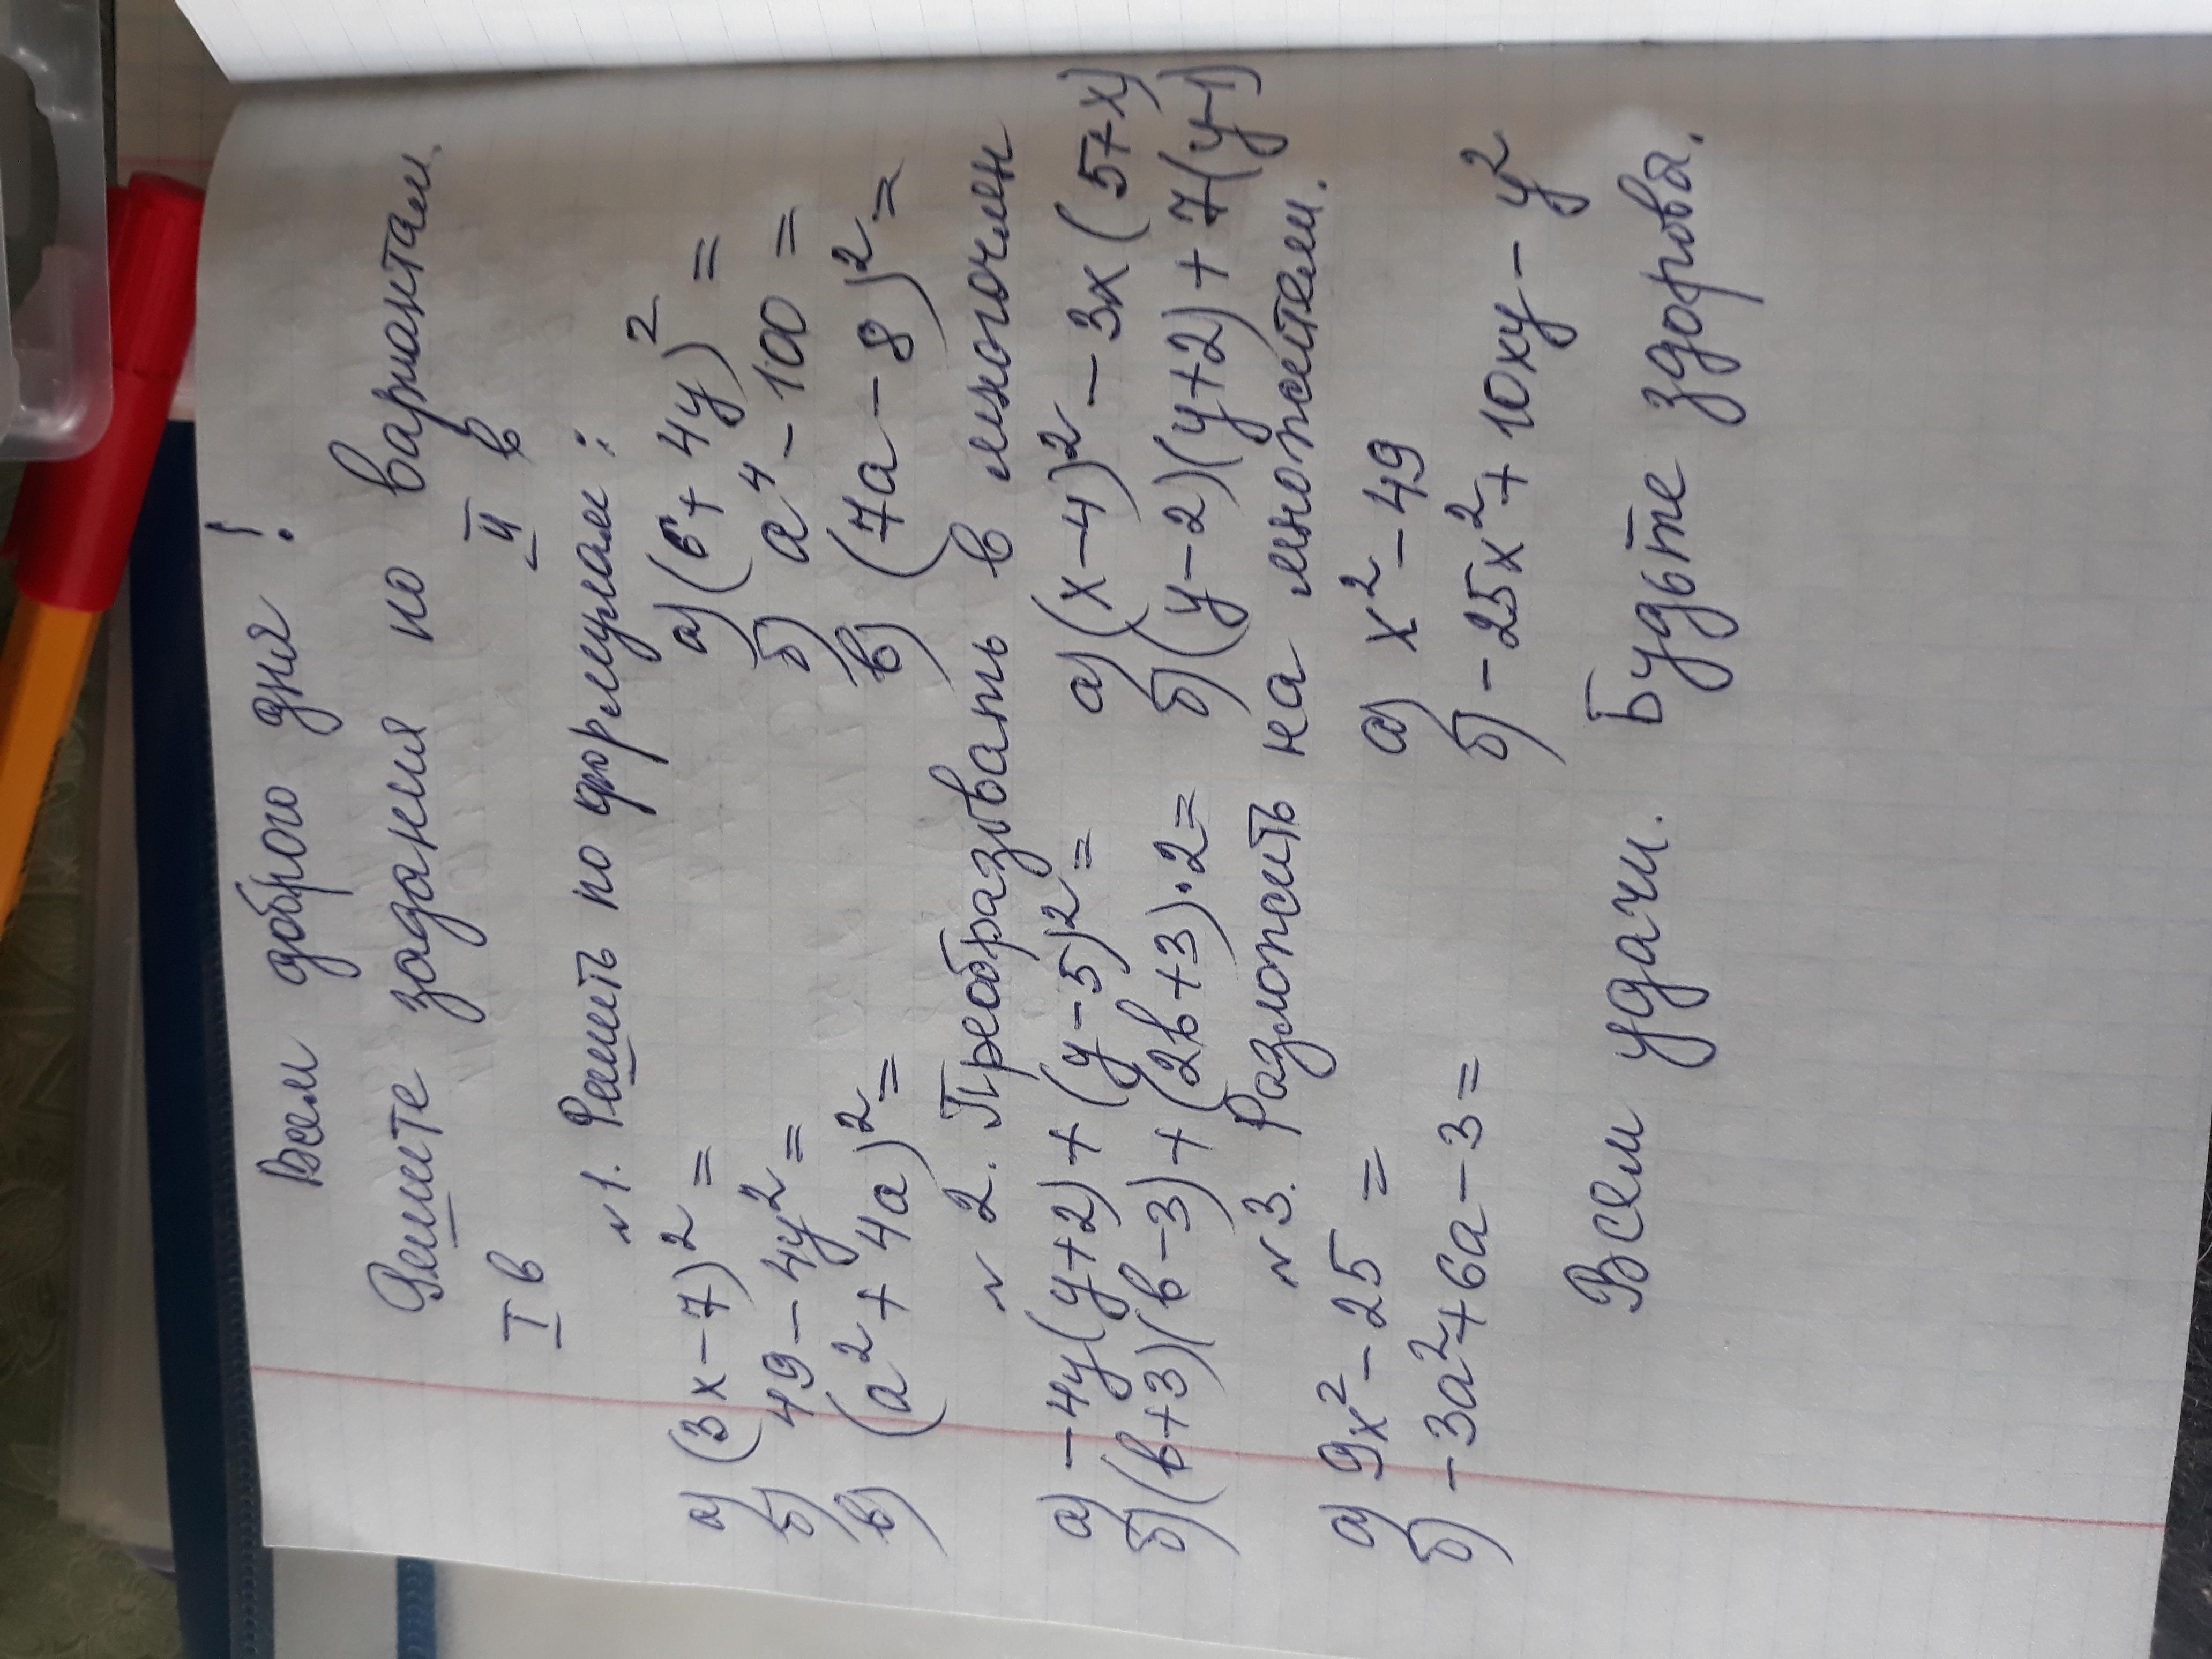 Всем доброго дня!
Решите задания по вариантам.
I в II в
№1. Решить по формулам:
а) (3x-7)²= а) (6+4y)²=
б) 49-4y²= б) a⁴-100=
в) (a²+4a)²= в) (7a-8)²=
№2. Преобразывать в многочлен
а) -4y(y+2)+(y-5)²= а) (x-4)²-3x(5+x)
б) (b+3)(b-3)+(2b+3)·2= б) (y-2)(y+2)+7(y-1)
№3. Разложить на множители.
а) 9x²-25= а) x²-49
б) -3a²+6a-3= б) -25x²+10xy-y²
Всем удачи. Будьте здоровы.